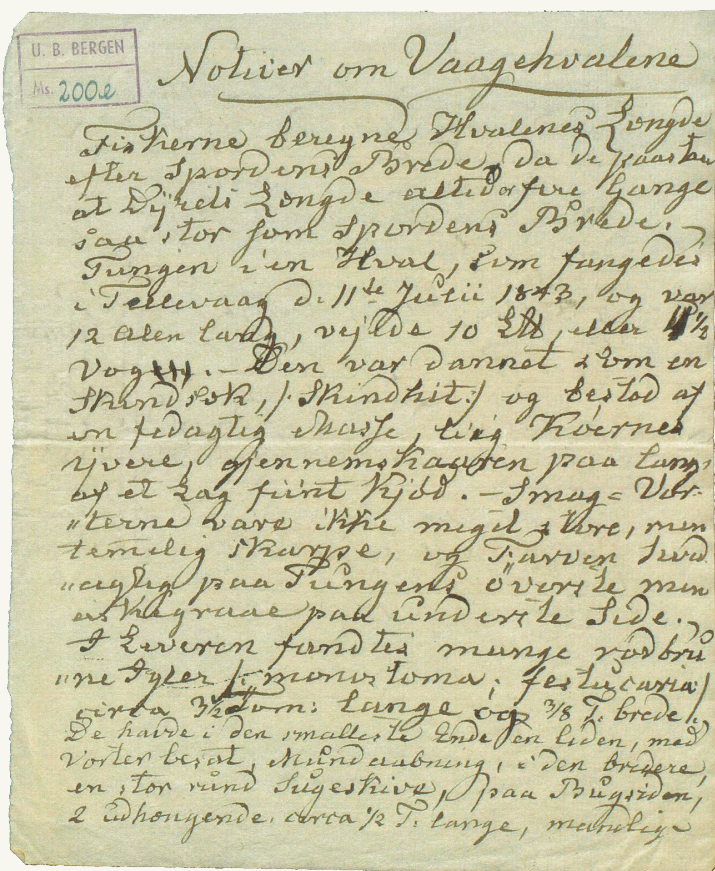 U. B. BERGEN
Ms. 200e
Noticer om Vaagehvalene
Fiskerne beregne Hvalenes Længde
efter Spordens Brede, da de paastaae
at Dyrets Længde altid er fire Gange
saa stor som Spordens Brede.
Tungen i en Hval, som fangedes
i Tellevaag d. 11te Julii 1843, og var
12 Alen lang, vejede 10 eller 4½
Vog. – Den var dannet som en
Skindsæk, /: Skindhit :/ og bestod af
en fedagtig Masse, liig Køernes
Yvere, gjennemskaaren paa langs
af et Lag fiint Kjød. – Smag= Vor-
"terne vare ikke meget store, men
temelig skarpe, og Farven
paa Tungens överste men
askegraae paa underste Side.
I Leveren fandtes mange rödbrü
"ne Igler /: monostoma; festucaria :/
circa 3½ Tom: lange og 3/8 T. brede.
De havde i den smalleste Ende en liden, med
Vorter besat, Mundaabning, i den bredere,
en stor rund Sugeskive, paa Bugsiden,
2 udhængende, circa ½ T. lange, mandlige